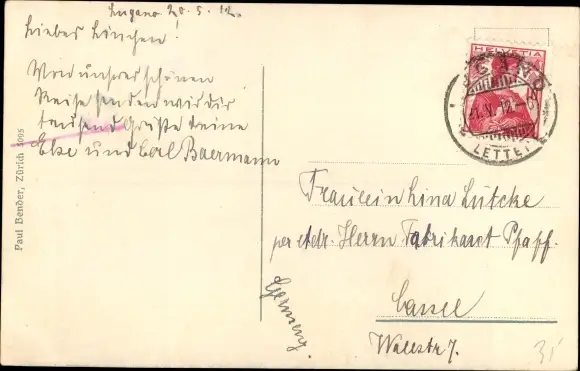 Lugano 20.5.12.
Liebes Linchen!
Von unsrer schönen
Reise senden wir dir
tausend Grüße deine
Else und Carl Baermann
Paul Bender, Zürich 5095
HELVETIA
LUGANO
LETTERE
Fräulein Lina Lütcke
per Adr. Herrn Fabrikant Pfaff.
Cassel
Germany.
Wallstr 7.